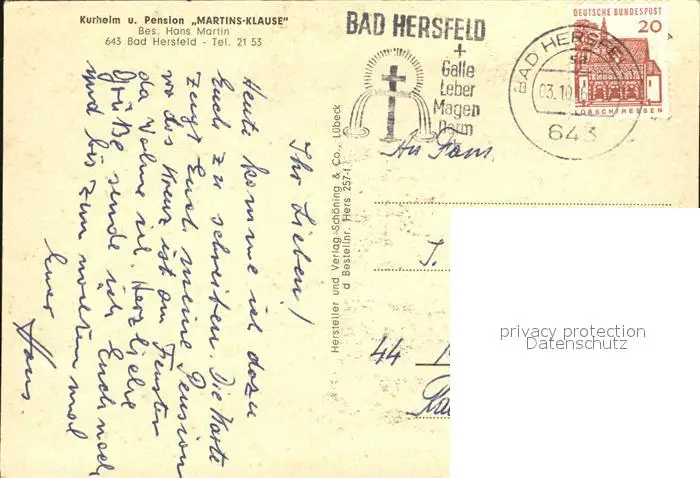 Kurheim u. Pension „MARTINS-KLAUSE"
Bes. Hans Martin
643 Bad Hersfeld - Tel. 21 53
BAD HERSFELD
+
Galle
Leber
Magen
Darm
BAD HERSFE
03.10.6
643
DEUTSCHE BUNDESPOST
20
LORSCH/HESSEN
Ihr Lieben!
Heute komme ich dazu
Euch zu schreiben. Die Karte
zeigt Euch meine Pension
wo das Kreuz ist am Fenster
da wohne ich. Herzliche
Grüße sende ich Euch noch
und bis zum nächsten mal
Euer
Hans
Hersteller und Verlag Schöning & Co., Lübeck
d Bestellnr. Hers 257-1
An Fam.
J.
44
privacy protection
Datenschutz